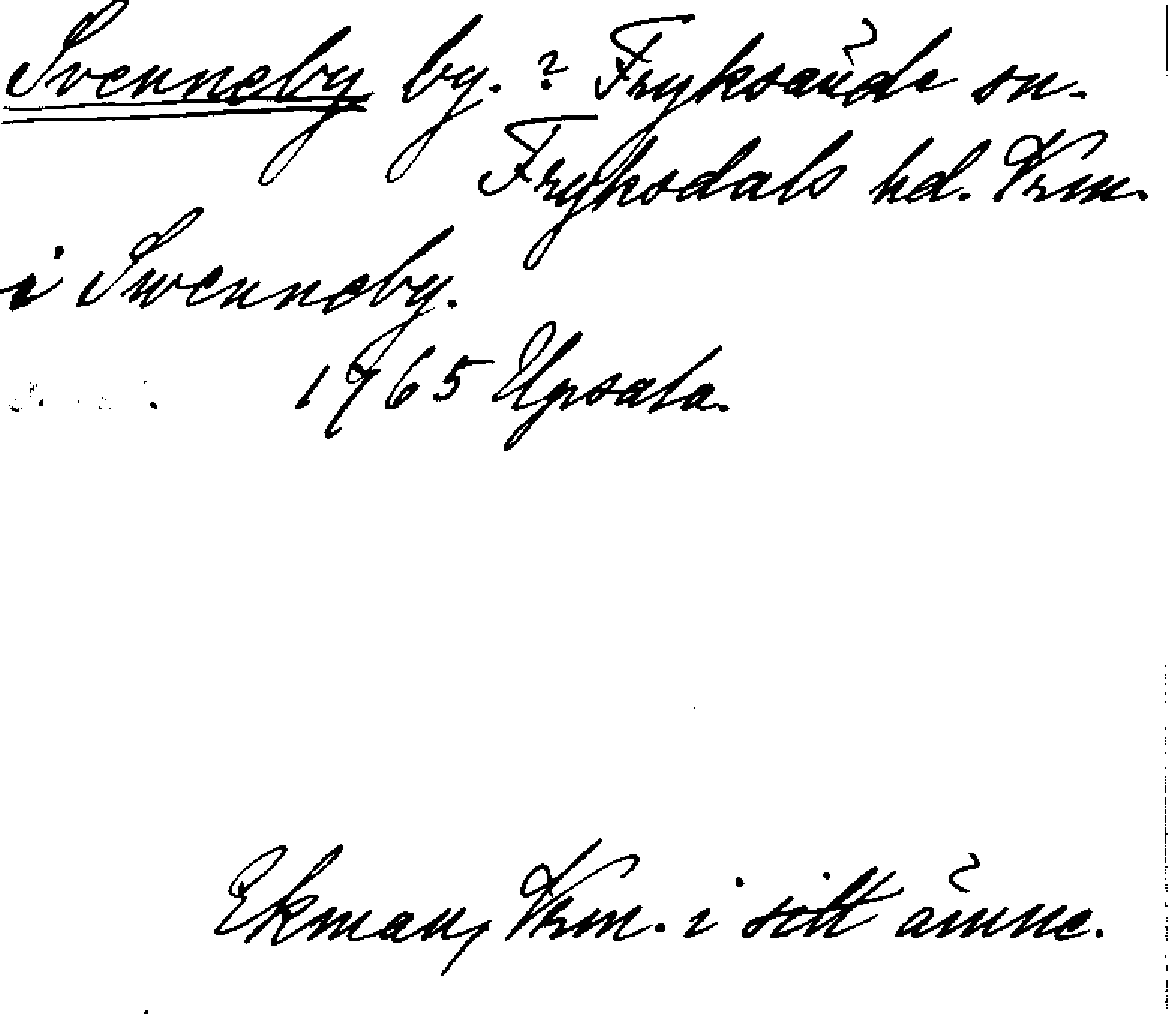 Svenneby by. ? Fryksände sn.
Fryksdals hd. Vrm.
i Swenneby.
1765 Upsala.
Ekman, Vrm. i sitt ämne.